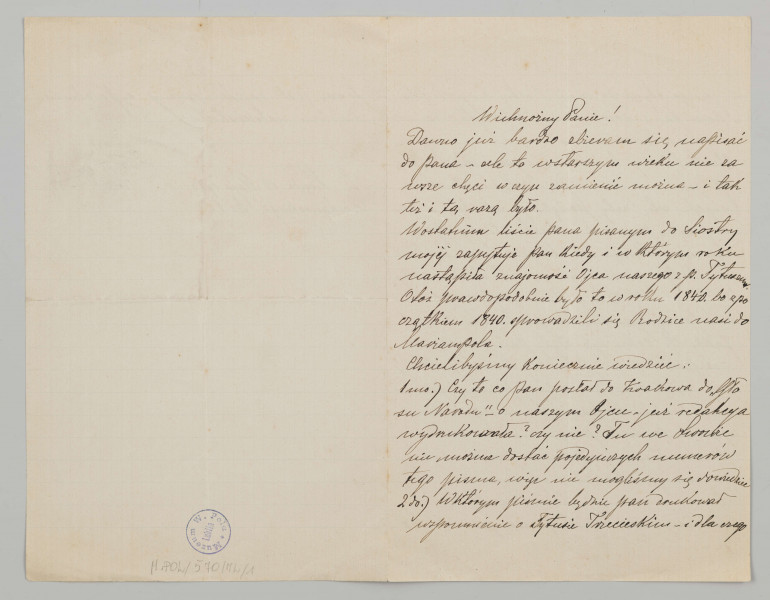 Wielmożny Panie!
Dawno już bardzo zbieram się napisać
do pana – ale to w starszym wieku nie za
wsze chęci w czyn zamienić można – i tak
też i tą razą było.
W ostatnim liście pana pisanym do Siostry
mojéj zapytuje pan kiedy i w którym roku
nastąpiła znajomość Ojca naszego z p. Tytusem
Otóż prawdopodobnie było to w roku 1840. bo z po
czątkiem 1840. sprowadzili się Rodzice nasi do
Maryampola.
Chcielibyśmy koniecznie wiedzieć:
1mo.) Czy to co pan posłał do Krakowa do „Gło
su Narodu" o naszym Ojcu – już redakcya
wydrukowała? czy nie? Tu we Lwowie
nie można dostać pojedyńczych numerów
tego pisma, więc nie mogliśmy się dowiedzieć
2do.) W którym piśmie będzie pan drukował
wspomnienie o Tytusie Trzecieskim – i dla czego